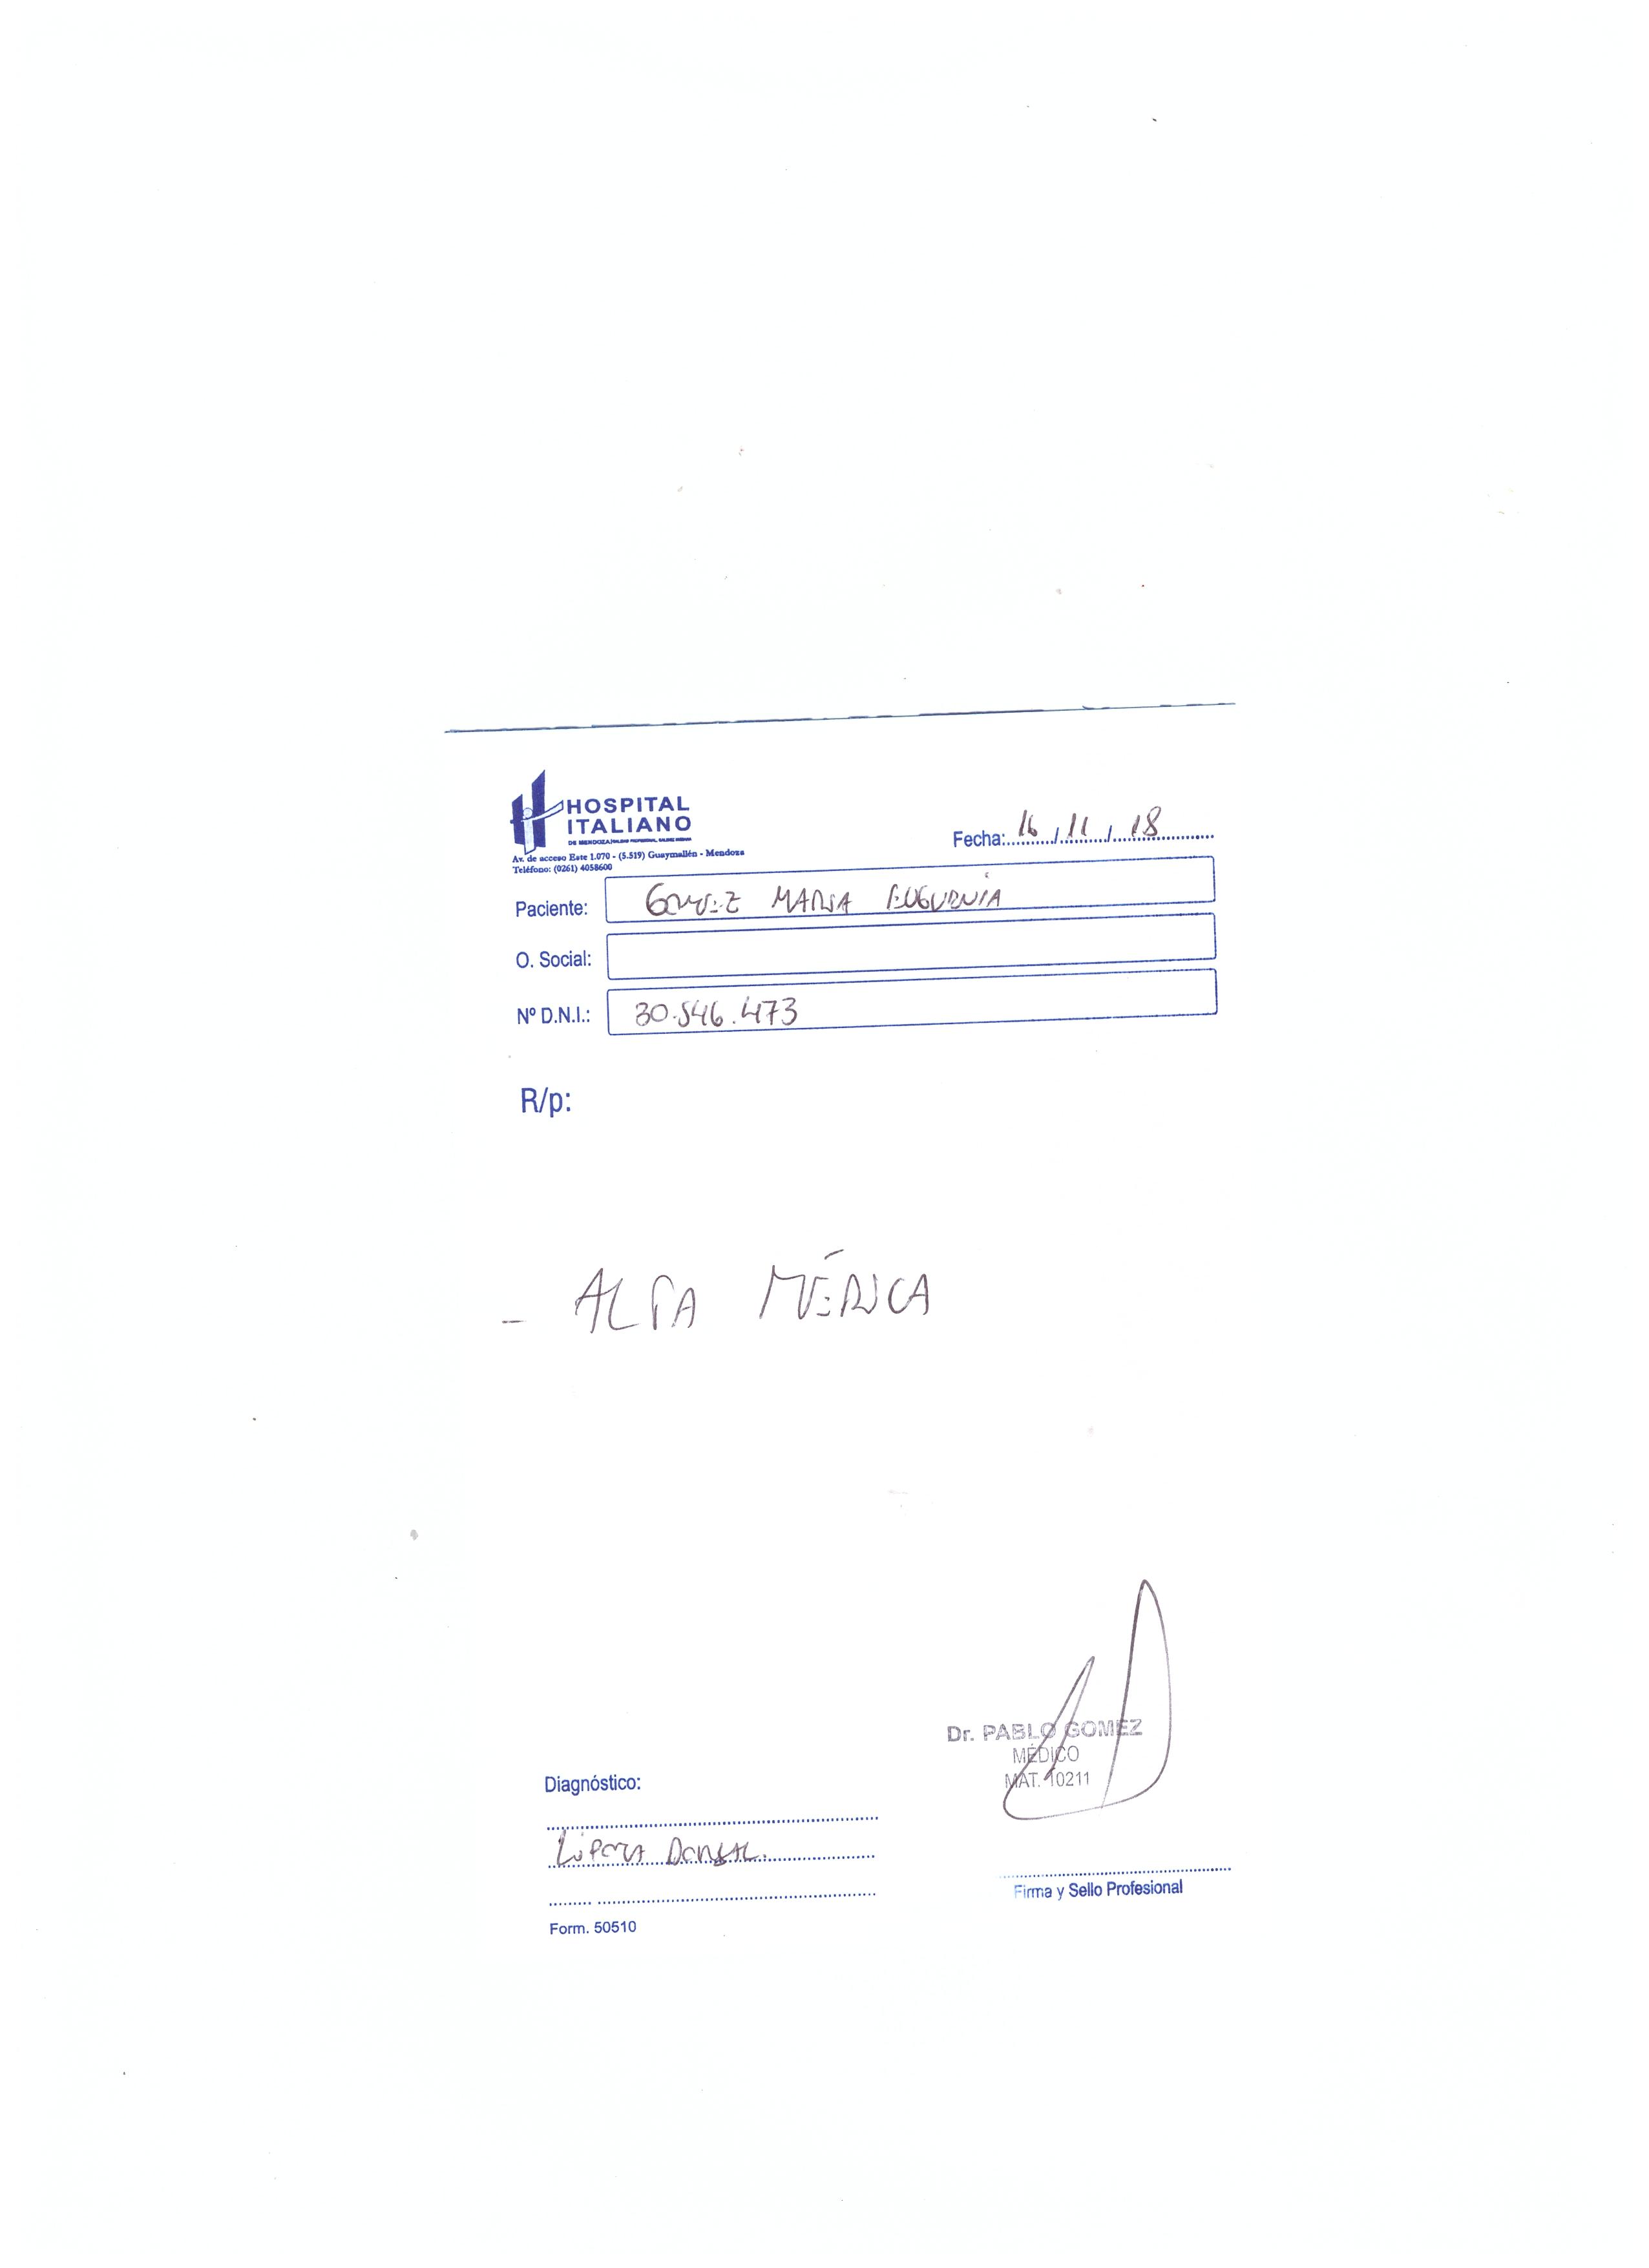 HOSPITAL
ITALIANO
Av. de acceso Este 1.070 - (5.519) Guaymallén - Mendoza
Teléfono: (0261) 4058600
Fecha: 16 / 11 / 18
Paciente: GOMEZ MARIA EUGENIA
O. Social:
Nº D.N.I.: 30.546.473
R/p:
- ALTA MÉDICA
Dr. PABLO GOMEZ
MÉDICO
MAT. 10211
Diagnóstico:
Lipoma Dorsal.
Firma y Sello Profesional
Form. 50510